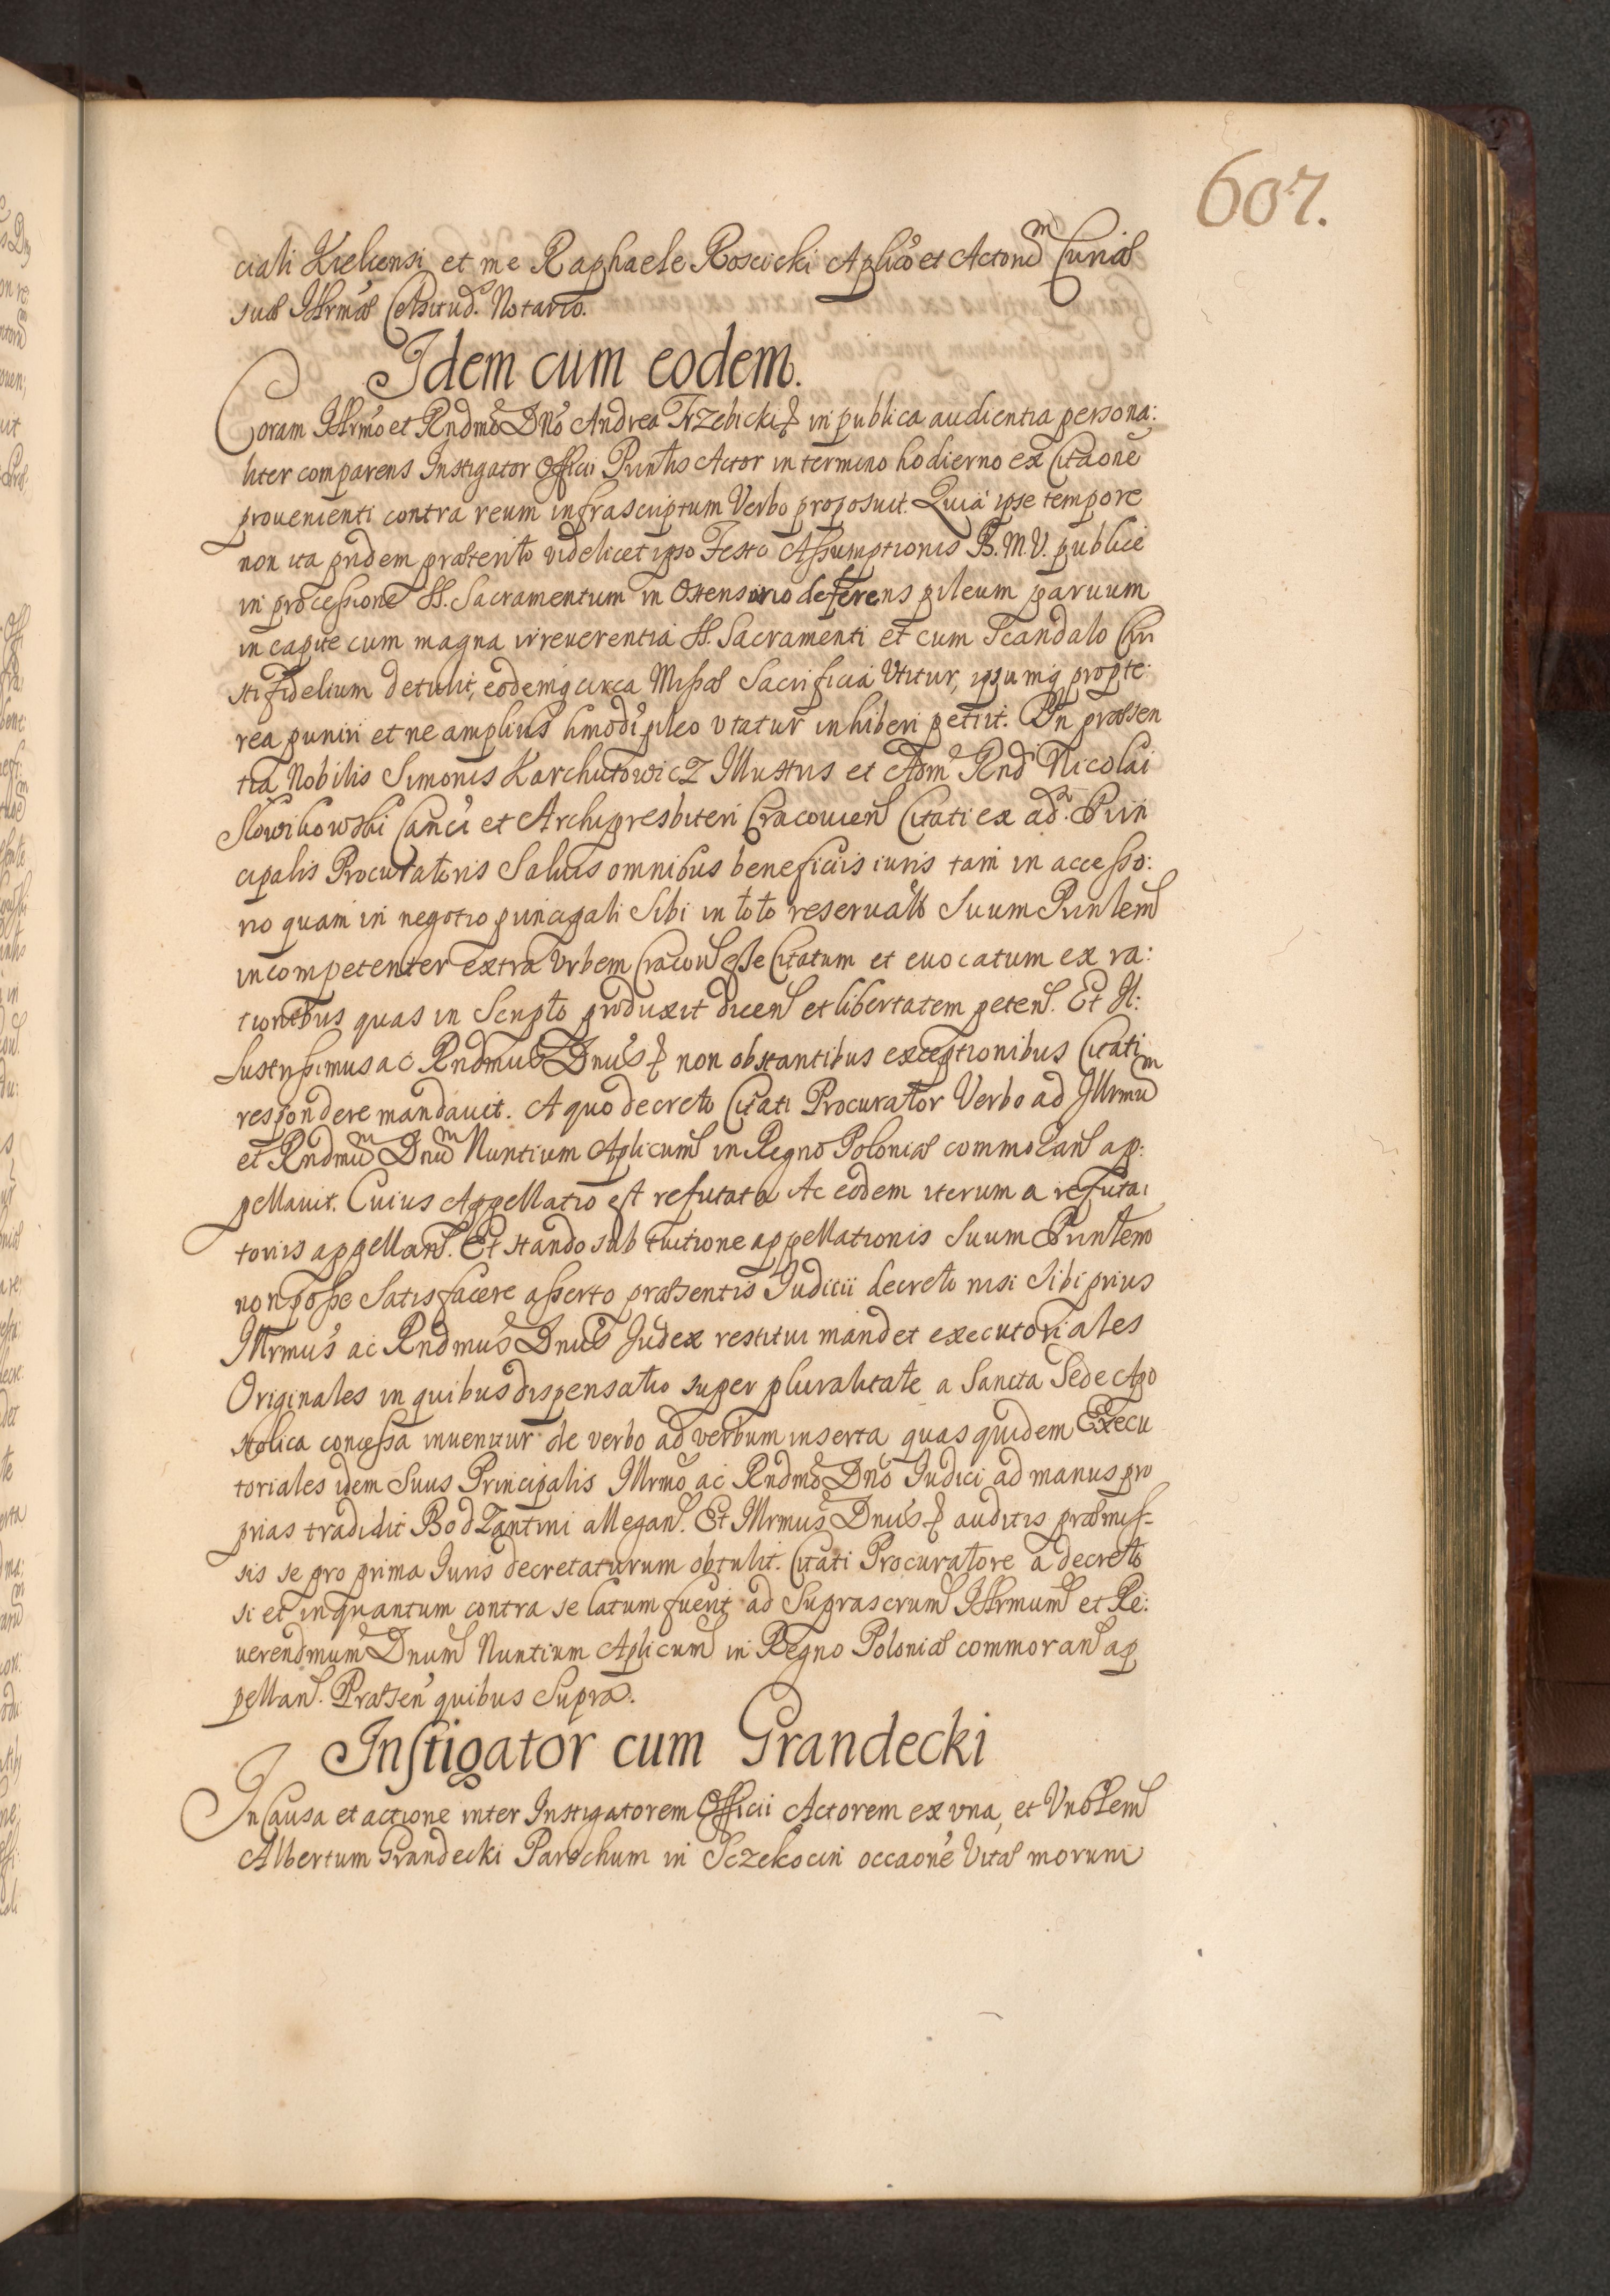 607.
ciali Kielcensi et me Raphaele Roscicki Aplico et Actorum Curiæ
suæ Illrmæ Celsitud. Notario.
Idem cum eodem.
Coram Illrmo et Rndmo Dno Andrea Trzebicki & in publica audientia persona:
liter comparens Instigator Officii Pnntis Actor in termino hodierno ex Citaone
proueniente contra reum infrascriptum Verbo proposuit. Quia ipse tempore
non ita pridem præterito videlicet ipso Festo Assumptionis B. M. V. publice
in processione SS. Sacramentum in Ostensorio deferens pileum paruum
in capite cum magna irreuerentia SS. Sacramenti et cum Scandalo Chri
sti fidelium detulit, eodemq circa Missæ Sacrificia Vtitur, ipsumq propte:
rea puniri et ne amplius hmodi pileo vtatur inhiberi petiit. In præsen
tia Nobilis Simonis Karchutowicz Illustris et Adm Rndi Nicolai
Slowikowski Canci et Archipresbiteri Cracouien Citati ex ad. Prin
cipalis Procuratoris Saluis omnibus beneficiis iuris tam in accesso:
rio quam in negotio principali Sibi in toto reseruatis Suum Prinlem
incompetenter extra Vrbem Cracou esse Citatum et euocatum ex ra:
tionibus quas in Scripto produxit dicens et libertatem petens. Et Il:
lustrissimus ac Rndmus Dnus & non obstantibus exceptionibus Citati
respondere mandauit. A quo decreto Citati Procurator Verbo ad Illrmum
et Rndmum Dnum Nuntium Aplicum in Regno Poloniæ commoran ap:
pellauit. Cuius Appellatio est refutata Ac eodem iterum a refuta:
toriis appellans. Et stando sub tuitione appellationis Suum Prinlem
non posse Satisfacere asserto præsentis Judicii decreto nisi Sibi prius
Illrmus ac Rndmus Dnus Judex restitui mandet executoriales
Originales in quibus dispensatio super pluralitate a Sancta Sede Apo
stolica concessa inuenitur de verbo ad verbum inserta quas quidem Execu
toriales idem Suus Principalis Illrmo ac Rndmo Dno Iudici ad manus pro
prias tradidit Bodzantini allegans. Et Illrmus Dnus & auditis præmis-
sis se pro prima Iuris decretaturum obtulit. Citati Procuratore a decreto
si et inquantum contra se latum fuerit ad Suprascrum Illrmum et Re:
uerendmum Dnum Nuntium Aplicum in Regno Poloniæ commoran ap
pellans. Præsen quibus Supra.
Instigator cum Grandecki
In Causa et actione inter Instigatorem Officii Actorem ex vna, et Vnblem
Albertum Grandecki Parochum in Sczekocin occaone Vitæ morum